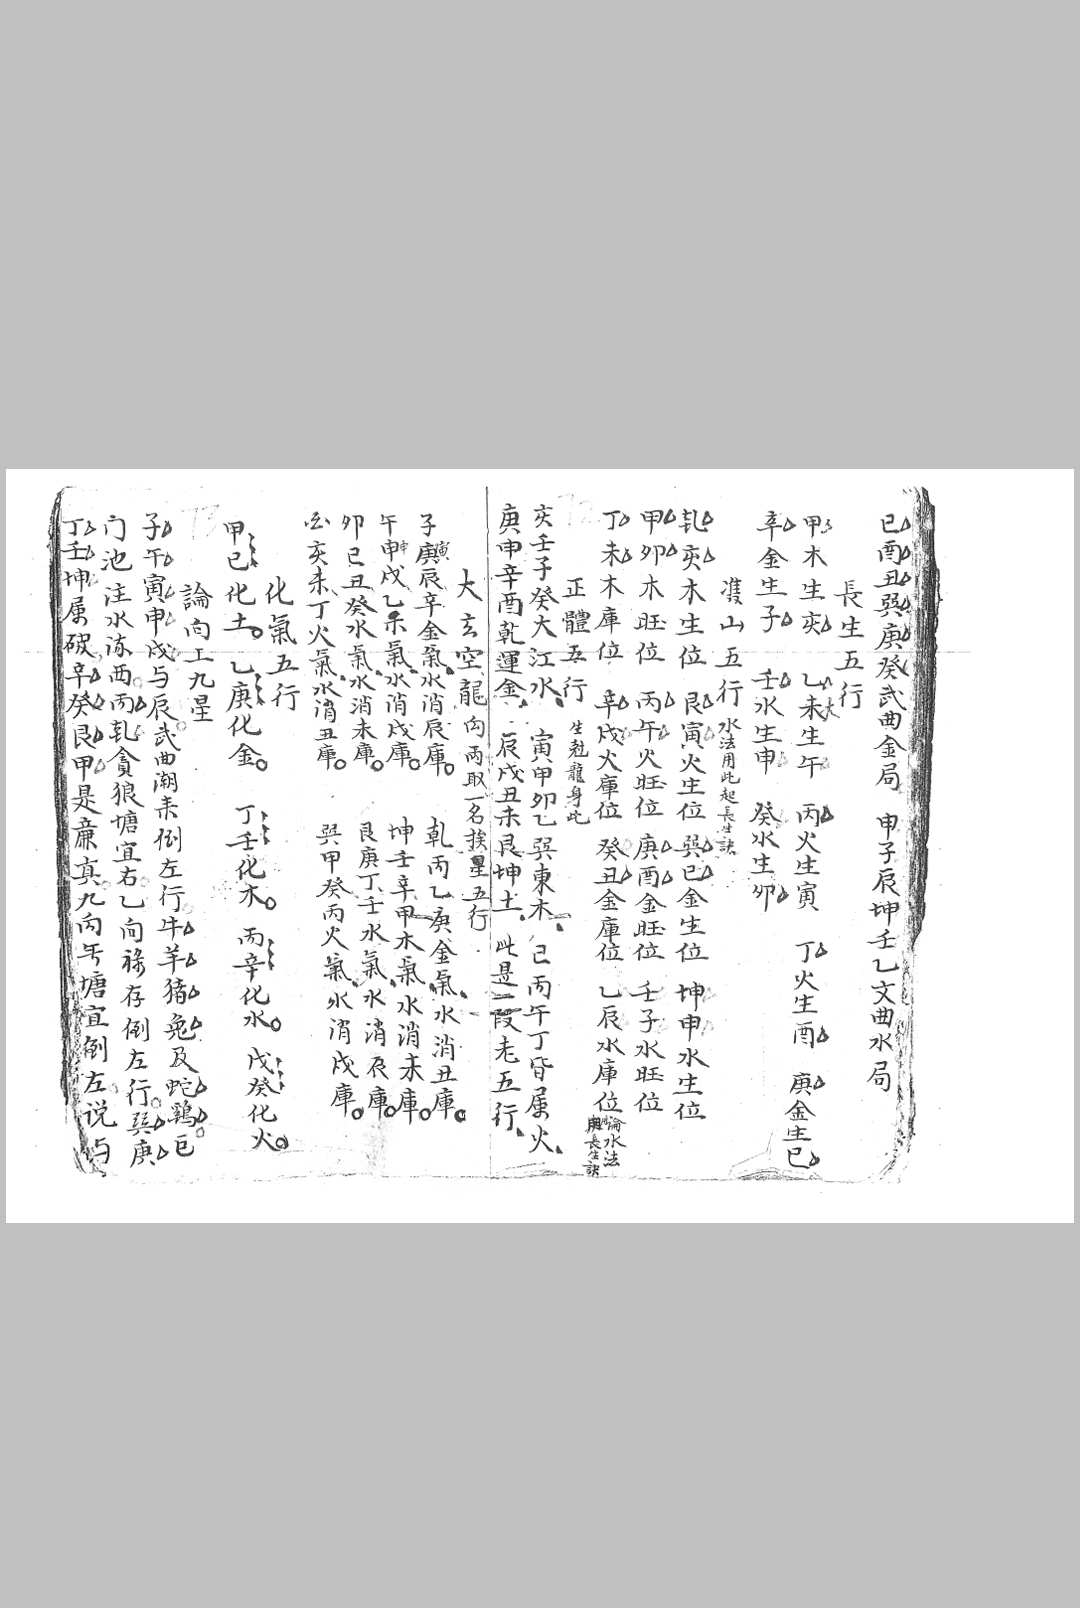 巳酉丑巽庚癸武曲金局 申子辰坤壬乙文曲水局
長生五行
甲木生亥 乙木生午 丙火生寅 丁火生酉 庚金生巳
辛金生子 壬水生申 癸水生卯
雙山五行 水法用此起長生訣
乹亥木生位 艮寅火生位 巽巳金生位 坤申水生位
甲卯木旺位 丙午火旺位 庚酉金旺位 壬子水旺位
丁未木庫位 辛戌火庫位 癸丑金庫位 乙辰水庫位 論水法用長生訣
正體五行 生尅龍身此
亥壬子癸大江水 寅甲卯乙巽東木 巳丙午丁皆属火
庚申辛酉乾運金 辰戌丑未艮坤土 此是二段老五行
大玄空龍向两取一名挨星五行
子寅庚辰辛金氣水消辰庫 乹丙乙庚金氣水消丑庫
午申戌乙木氣水消戌庫 坤壬辛甲木氣水消未庫
卯巳丑癸水氣水消未庫 艮庚丁壬水氣水消辰庫
酉亥未丁火氣水消丑庫 巽甲癸丙火氣水消戌庫
化氣五行
甲己化土 乙庚化金 丁壬化木 丙辛化水 戊癸化火
論向工九星
子午寅申戌与辰武曲潮来倒左行牛羊猪兔及蛇鷄巨
门池注水涷西丙乹貪狼塘宜右乙向祿存倒左行巽庚
丁壬坤属破辛癸艮甲是廉真九向塘宜倒左说与